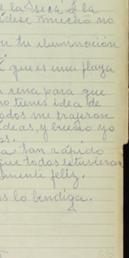 e la seca a la
dese mucho no
en tu iluminación
que es una playa
cena para que
no tienes idea de
odos me trajeron
ideas, y bueno yo
os.
tan rápido
que todos estuvieron
mente feliz.
os lo bendiga.